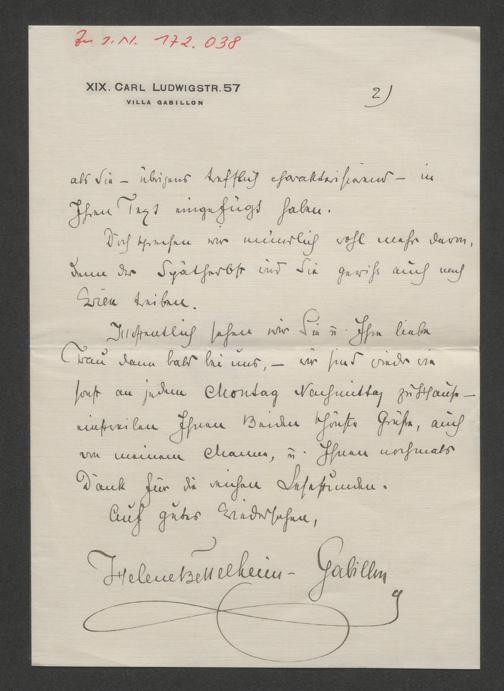 Zu I.N. 172.038
XIX. CARL LUDWIGSTR. 57
VILLA GABILLON
2)
als Sie – übrigens trefflich charakterisirend – in
Ihren Text eingefügt haben.
Doch sprechen wir mündlich wohl mehr davon,
denn der Spätherbst wird Sie gewiß auch nach
Wien treiben.
Hoffentlich sehen wir Sie u. Ihre liebe
Frau dann bald bei uns, – wir sind wieder wie
sonst an jedem Montag Nachmittag zu Hause –
einstweilen Ihnen Beiden schönste Grüße, auch
von meinem Manne, u. Ihnen nochmals
Dank für die reichen Lesestunden.
Auf gutes Wiedersehen,
Helene Bettelheim-Gabillon